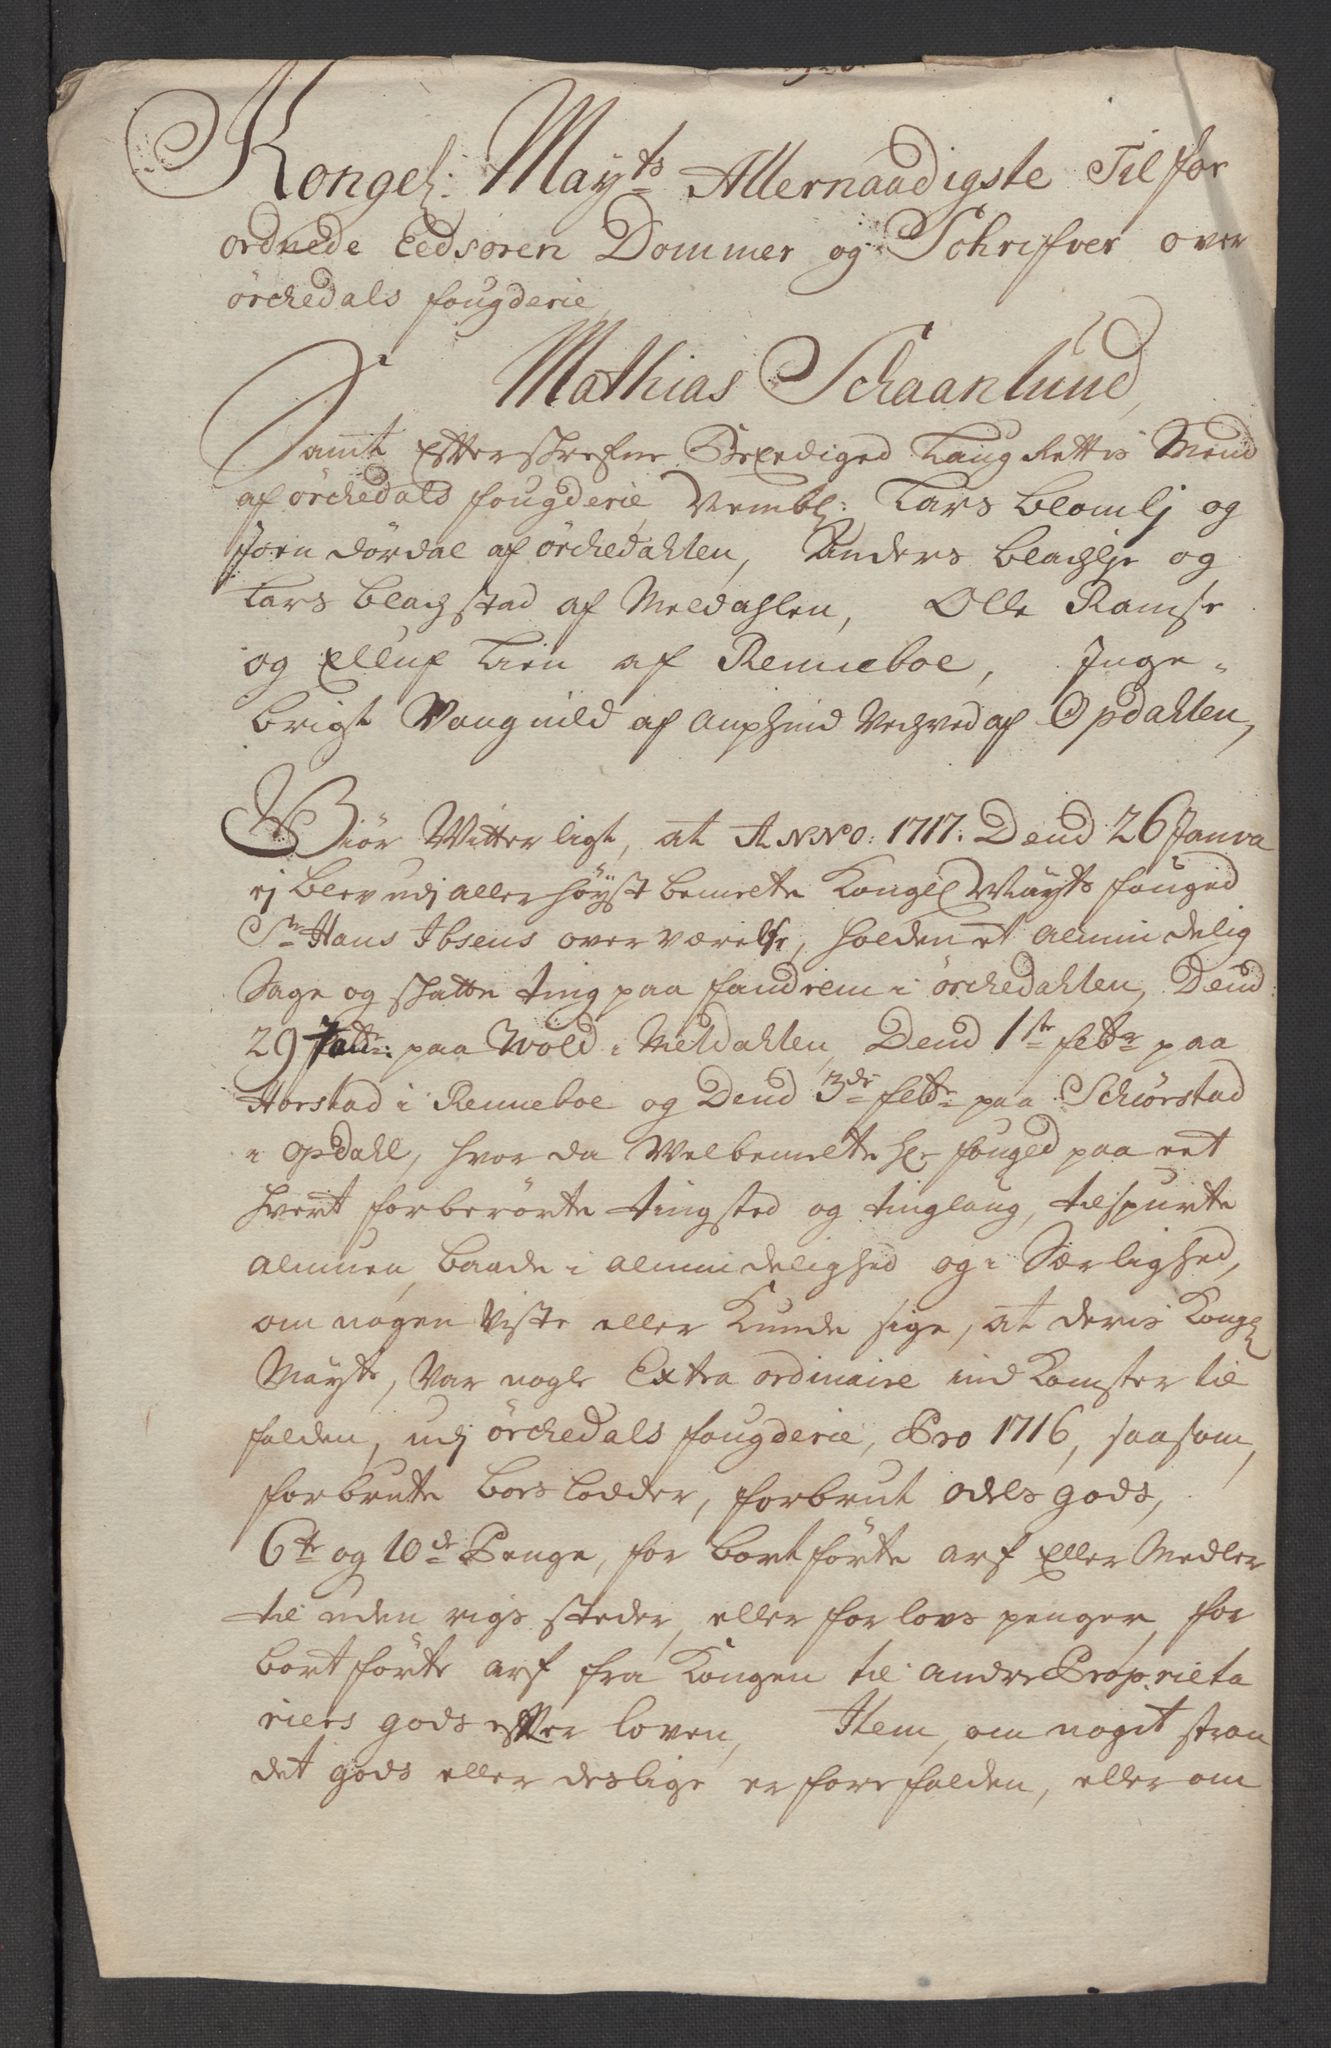 Kongel: Mayts Allernaadigste Til for
ordnede Eedsoren Dommer og Schrifver over
örchedals fougderie,
Mathias Schaanlund,
Samt Efterschrefne Beædiged Laug Rettis Mend
af örchedals fougderie, Nembl: Lars blomlj og
Joen dördal af örchedahlen, Anders blachlje og
Lars blachstad af Meldahlen, Olle Ramse
og Elluf Lien af Renneboe, Inge-
brigt Vangnild af Amphind Vechved af Opdahlen,
Giör Witterligt, at ANNO: 1717. Dend 26 Janva
rj blev udj allerhöyst bemelte Kongel Mayts fouged
Sr Hans Ibsens overværelse, holden et almindelig
Sage og skatte ting paa fandrem i örchedahlen, Dend
29 Jan: paa Wold i Meldahlen, Dend 1ste febr paa
Horstad i Renneboe og Dend 3de febr paa Schiörstad
i opdahl, hvor da Welbemelte Hr fouged paa eet
hvert forberörte tingsted og tinglaug, tilspurte
almuen, baade i almindelighed og i Særlighed,
om nogen viste eller Kunde sige, at deris Kongl
Mayts, var nogle Extra ordinaire indKomster til
falden, udj örchedals fougderie, Pro 1716, saasom,
forbrutte boeslodder, forbrut odels gods,
6te og 10de Penge, for bortförte arf Eller Medler
til uden rigs steder, eller forlovs penger, for
bortförte arf fra Kongen til andre Proprieta
riers gods efter loven, Item, om noget stran
det gods eller deslige er forefalden, eller om